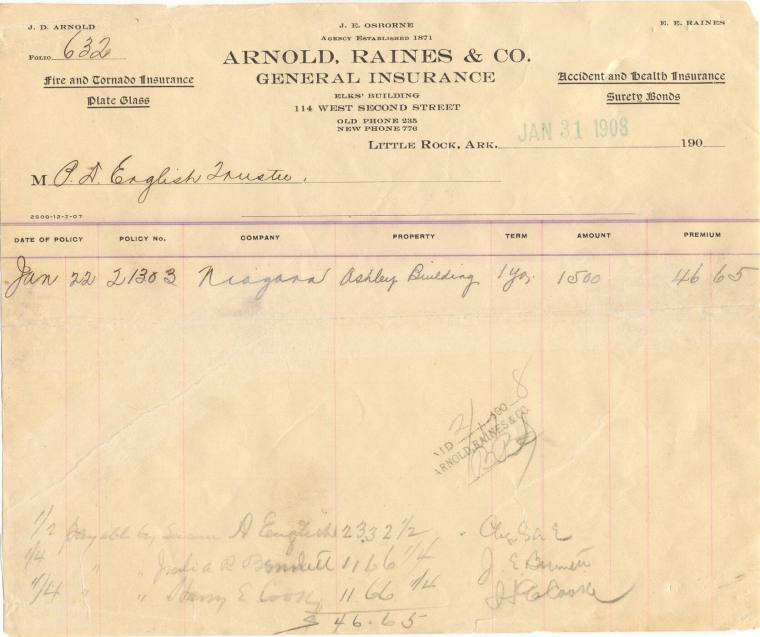 J. D. ARNOLD
J. E. OSBORNE
E. E. RAINES
AGENCY ESTABLISHED 1871
FOLIO 632
ARNOLD, RAINES & CO.
Fire and Tornado Insurance
GENERAL INSURANCE
Accident and Health Insurance
Plate Glass
ELKS' BUILDING
Surety Bonds
114 WEST SECOND STREET
OLD PHONE 235
NEW PHONE 776
LITTLE ROCK, ARK. JAN 31 1908 190
M P. D. English Trustee.
2500-12-7-07
DATE OF POLICY POLICY No. COMPANY PROPERTY TERM AMOUNT PREMIUM
Jan 22 21303 Niagara Ashley Building 1 yr. 1500 46 65
AID 2/1 190 8
ARNOLD, RAINES & CO.
1/2 payable by, Susan A English 23.32 1/2
1/4 " " Julia R Bennett 11 66 1/4 J. E Bennett
1/4 " " Henry E Cook 11 66 1/4
$ 46.65